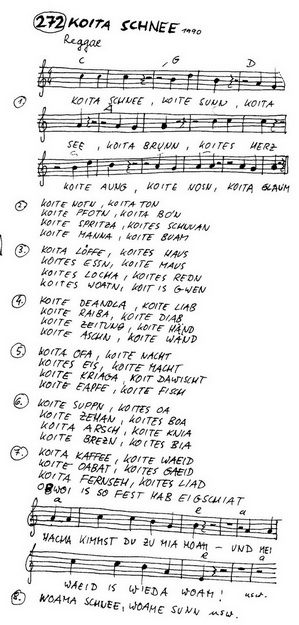 272 KOITA SCHNEE 1990
Reggae
C G D
1. KOITA SCHNEE, KOITE SUNN, KOITA
A
SEE, KOITA BRUNN, KOITES HERZ
KOITE AUNG, KOITE NOSN, KOITA
2. KOITE NOTN, KOITA TON
KOITE PFOTN, KOITA BO'N
KOITE SPRITZA, KOITES
KOITE MANNA, KOITE BUAM
3. KOITA LÖFFE, KOITES HAUS
KOITES ESSN, KOITE MAUS
KOITES LOCHA, KOITES REDN
KOITES WOATN, KOIT IS GWEN
4. KOITE DEANDLA, KOITE LIAB
KOITE RAIBA, KOITE DIAB
KOITE ZEITUNG, KOITE HÄND
KOITE ASCHN, KOITE WÄND
5. KOITA OFA, KOITE NACHT
KOITES EIS, KOITE MACHT
KOITE KRIAGA, KOIT DAWISCHT
KOITE EAPFE, KOITE FISCH
6. KOITE SUPPN, KOITES OA
KOITE ZEHAN, KOITES BOA
KOITA ARSCH, KOITE KNIA
KOITE BREZN, KOITES BIA
7. KOITA KAFFEE, KOITE WAEID
KOITE OABAT, KOITES GAEID
KOITA FERNSEH, KOITES LIAD
OBWOI IS SO FEST HAB EIGSCHIAT
a e a
NACHA KIMMST DU ZU MIA HOAM - UND MEI
e
WAEID IS WIEDA WOAM! usw.
8. WOAMA SCHNEE, WOAME SUNN usw.